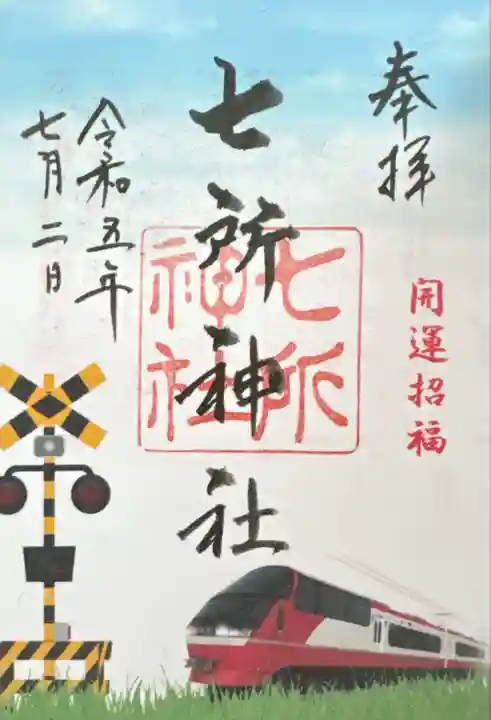 奉拝
開運招福
七所神社
七所
神社
令和五年
七月二日